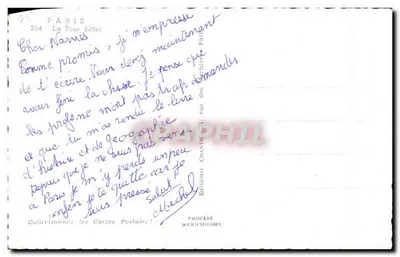 PARIS
254 La Tour Eiffel
Cher
Comme promis, je m'empresse
de t'écrire. Vous devez maintenant
avoir fini la chasse. Je pense que
les profs ne m'ont pas trop demandés
et que tu m'as rendu le livre
d'histoire et de Géographie
Depuis que je ne suis pas venu
à Paris je m'y perds un peu
enfin je te quitte car je
suis pressé Salut
Michel
Collectionnez les Cartes Postales!
PROCÉDÉ
MEXICHROME
CPAPHIL